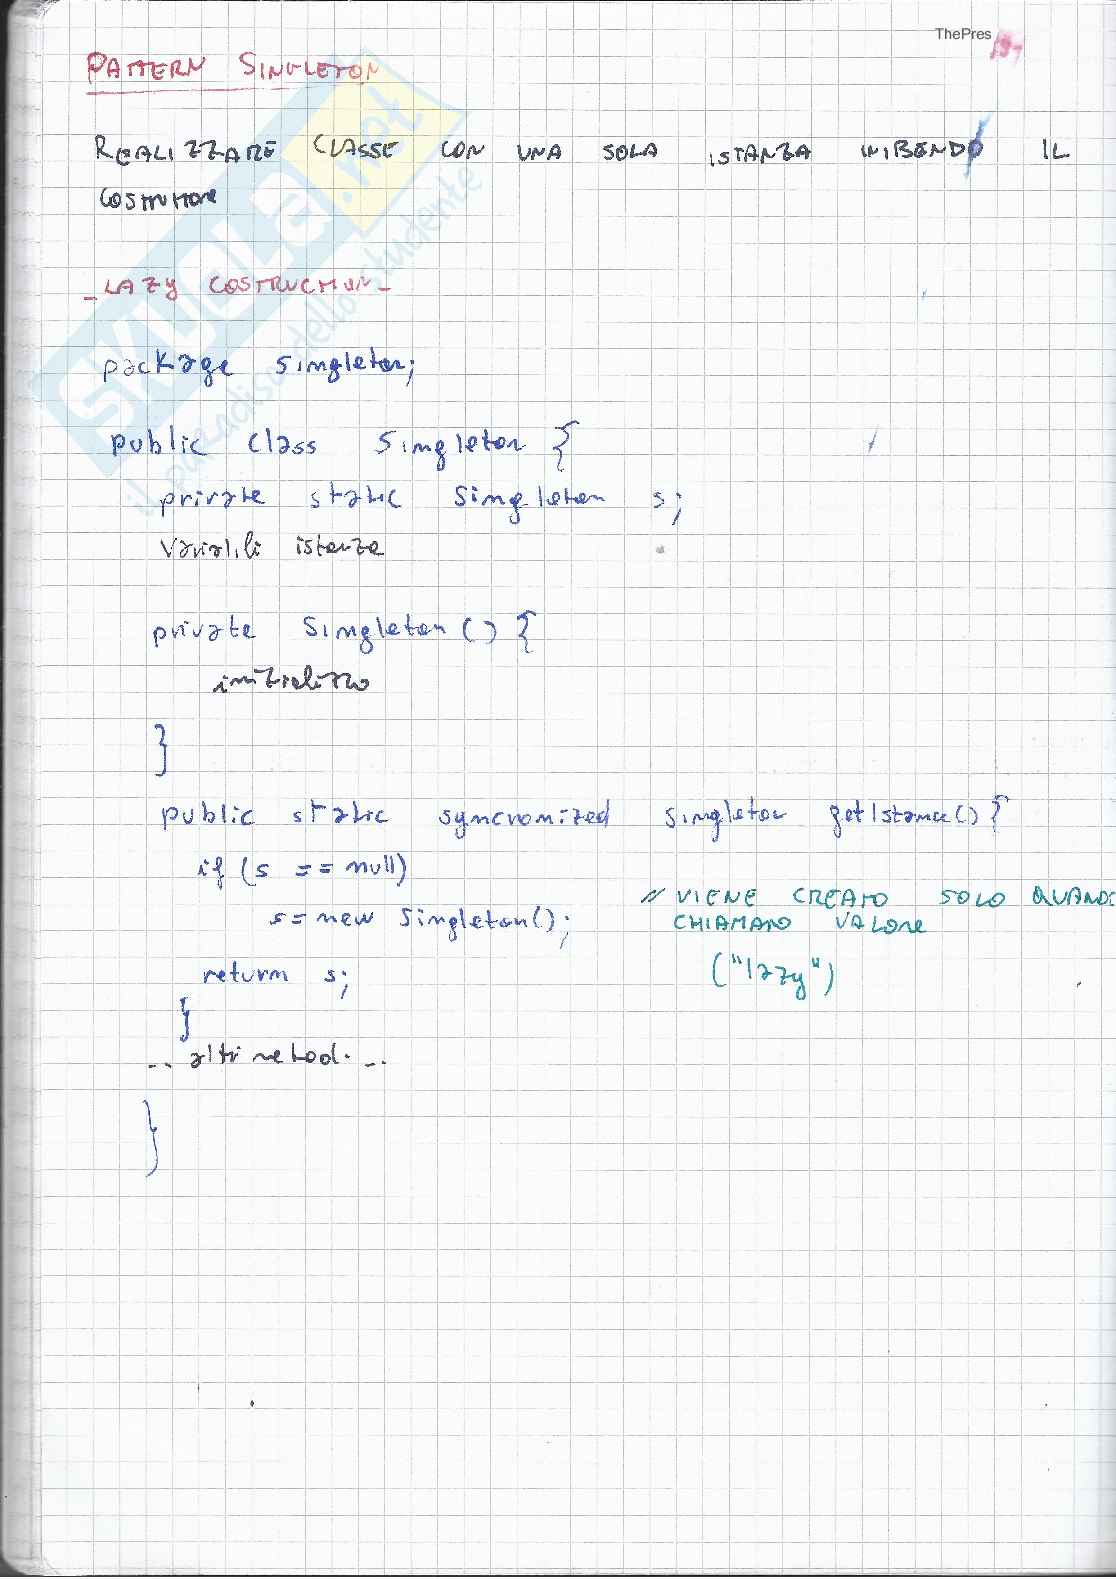 ThePres
PATTERN SINGLETON
REALIZZARE CLASSE CON UNA SOLA ISTANZA INIBENDO IL
COSTRUTTORE
_LAZY COSTRUCTION_
package singleton;
public class Singleton {
private static Singleton s;
variabili istanza
private Singleton () {
inizializzo
}
public static syncronized Singleton getIstance() {
if (s == null)
s = new Singleton();
// VIENE CREATO SOLO QUANDO
CHIAMATO VALORE
("lazy")
return s;
}
... altri metodi ...
}
SKUOLA.net
il paradiso dello studente